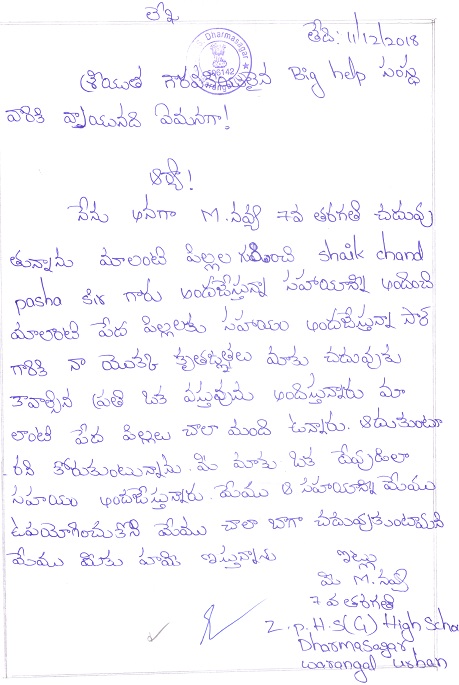 లేఖ
తేది: 11/12/2018
Dharmasagar
Warangal
శ్రీయుత గౌరవనీయులైన Big help సంస్థ
వారికి వ్రాయునది ఏమనగా!
ఆర్యా!
నేను అనగా M.నవ్య 7వ తరగతి చదువు
తున్నాను మాలాంటి పిల్లల గురించి shaik chand
pasha sir గారు అందజేస్తున్నా సహాయాన్ని అందించి
మాలాంటి పేద పిల్లలకు సహాయం అందజేస్తున్నా సార్
గారికి నా యొక్క కృతజ్ఞతలు మాకు చదువుకు
కావాల్సిన ప్రతి ఒక వస్తువును అందిస్తున్నారు మా
లాంటి పేద పిల్లలు చాలా మంది ఉన్నారు. ఆదుకుంటూ
రని కోరుకుంటున్నాను. మీ మాకు ఒక దేవుడిలా
సహాయం అందజేస్తున్నారు. మేము ఆ సహాయాన్ని మేము
ఉపయోగించుకొని మేము చాలా బాగా చదువుకుంటామని
మేము మీకు హామి ఇస్తున్నాను
ఇట్లు
మీ M.నవ్య
7 వ తరగతి
Z.p.H.S(G) High Scho
Dharmasagar
Warangal urban